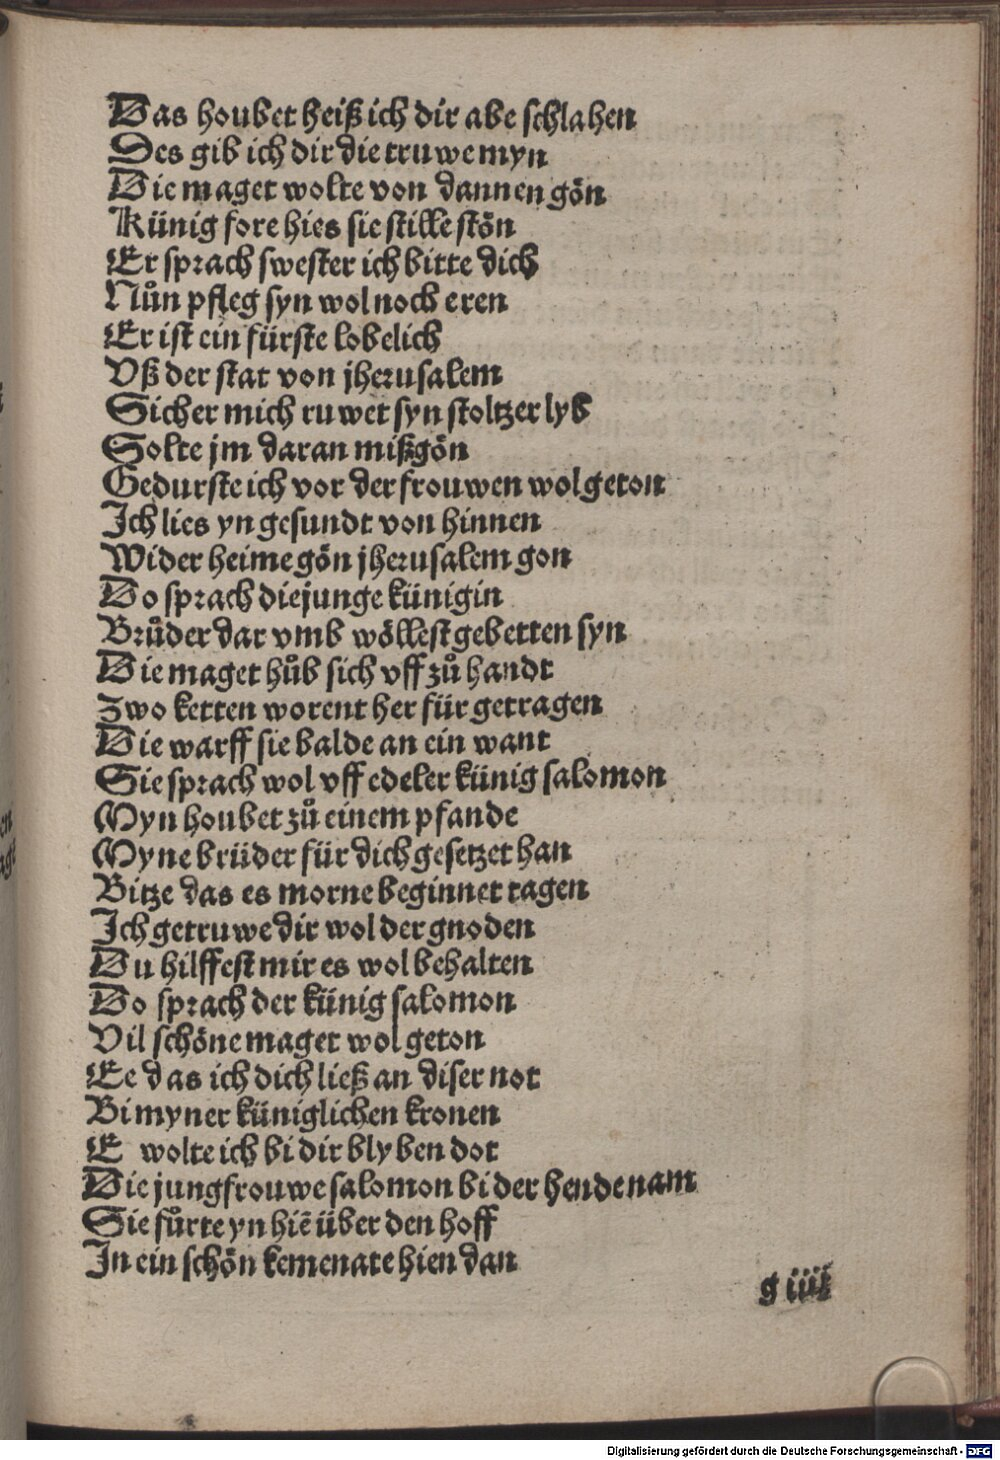 Das houbet heiß ich dir abe schlahen
Des gib ich dir die truwe myn
Die maget wolte von dannen gön
Künig fore hies sie stille stön
Er sprach swester ich bitte dich
Nůn pfleg syn wol noch eren
Er ist ein fürste lobelich
Vß der stat von jherusalem
Sicher mich ruwet syn stoltzer lyb
Solte jm daran mißgön
Gedurste ich vor der frouwen wolgeton
Ich lies yn gesundt von hinnen
Wider heime gön jherusalem gon
Do sprach die junge künigin
Brůder dar vmb wöllest gebetten syn
Die maget hůb sich vff zů handt
Zwo ketten worent her für getragen
Die warff sie balde an ein want
Sie sprach wol vff edeler künig salomon
Myn houbet zů einem pfande
Myne brüder für dich gesetzet han
Bitze das es morne beginnet tagen
Ich getruwe dir wol der gnoden
Du hilffest mir es wol behalten
Do sprach der künig salomon
Vil schöne maget wol geton
Ee das ich dich ließ an diser not
Bi myner küniglichen kronen
E wolte ich bi dir blyben dot
Die jungfrouwe salomon bi der hende nam
Sie fůrte yn hiē über den hoff
In ein schön kemenate hien dan
g iiij
Digitalisierung gefördert durch die Deutsche Forschungsgemeinschaft - DFG